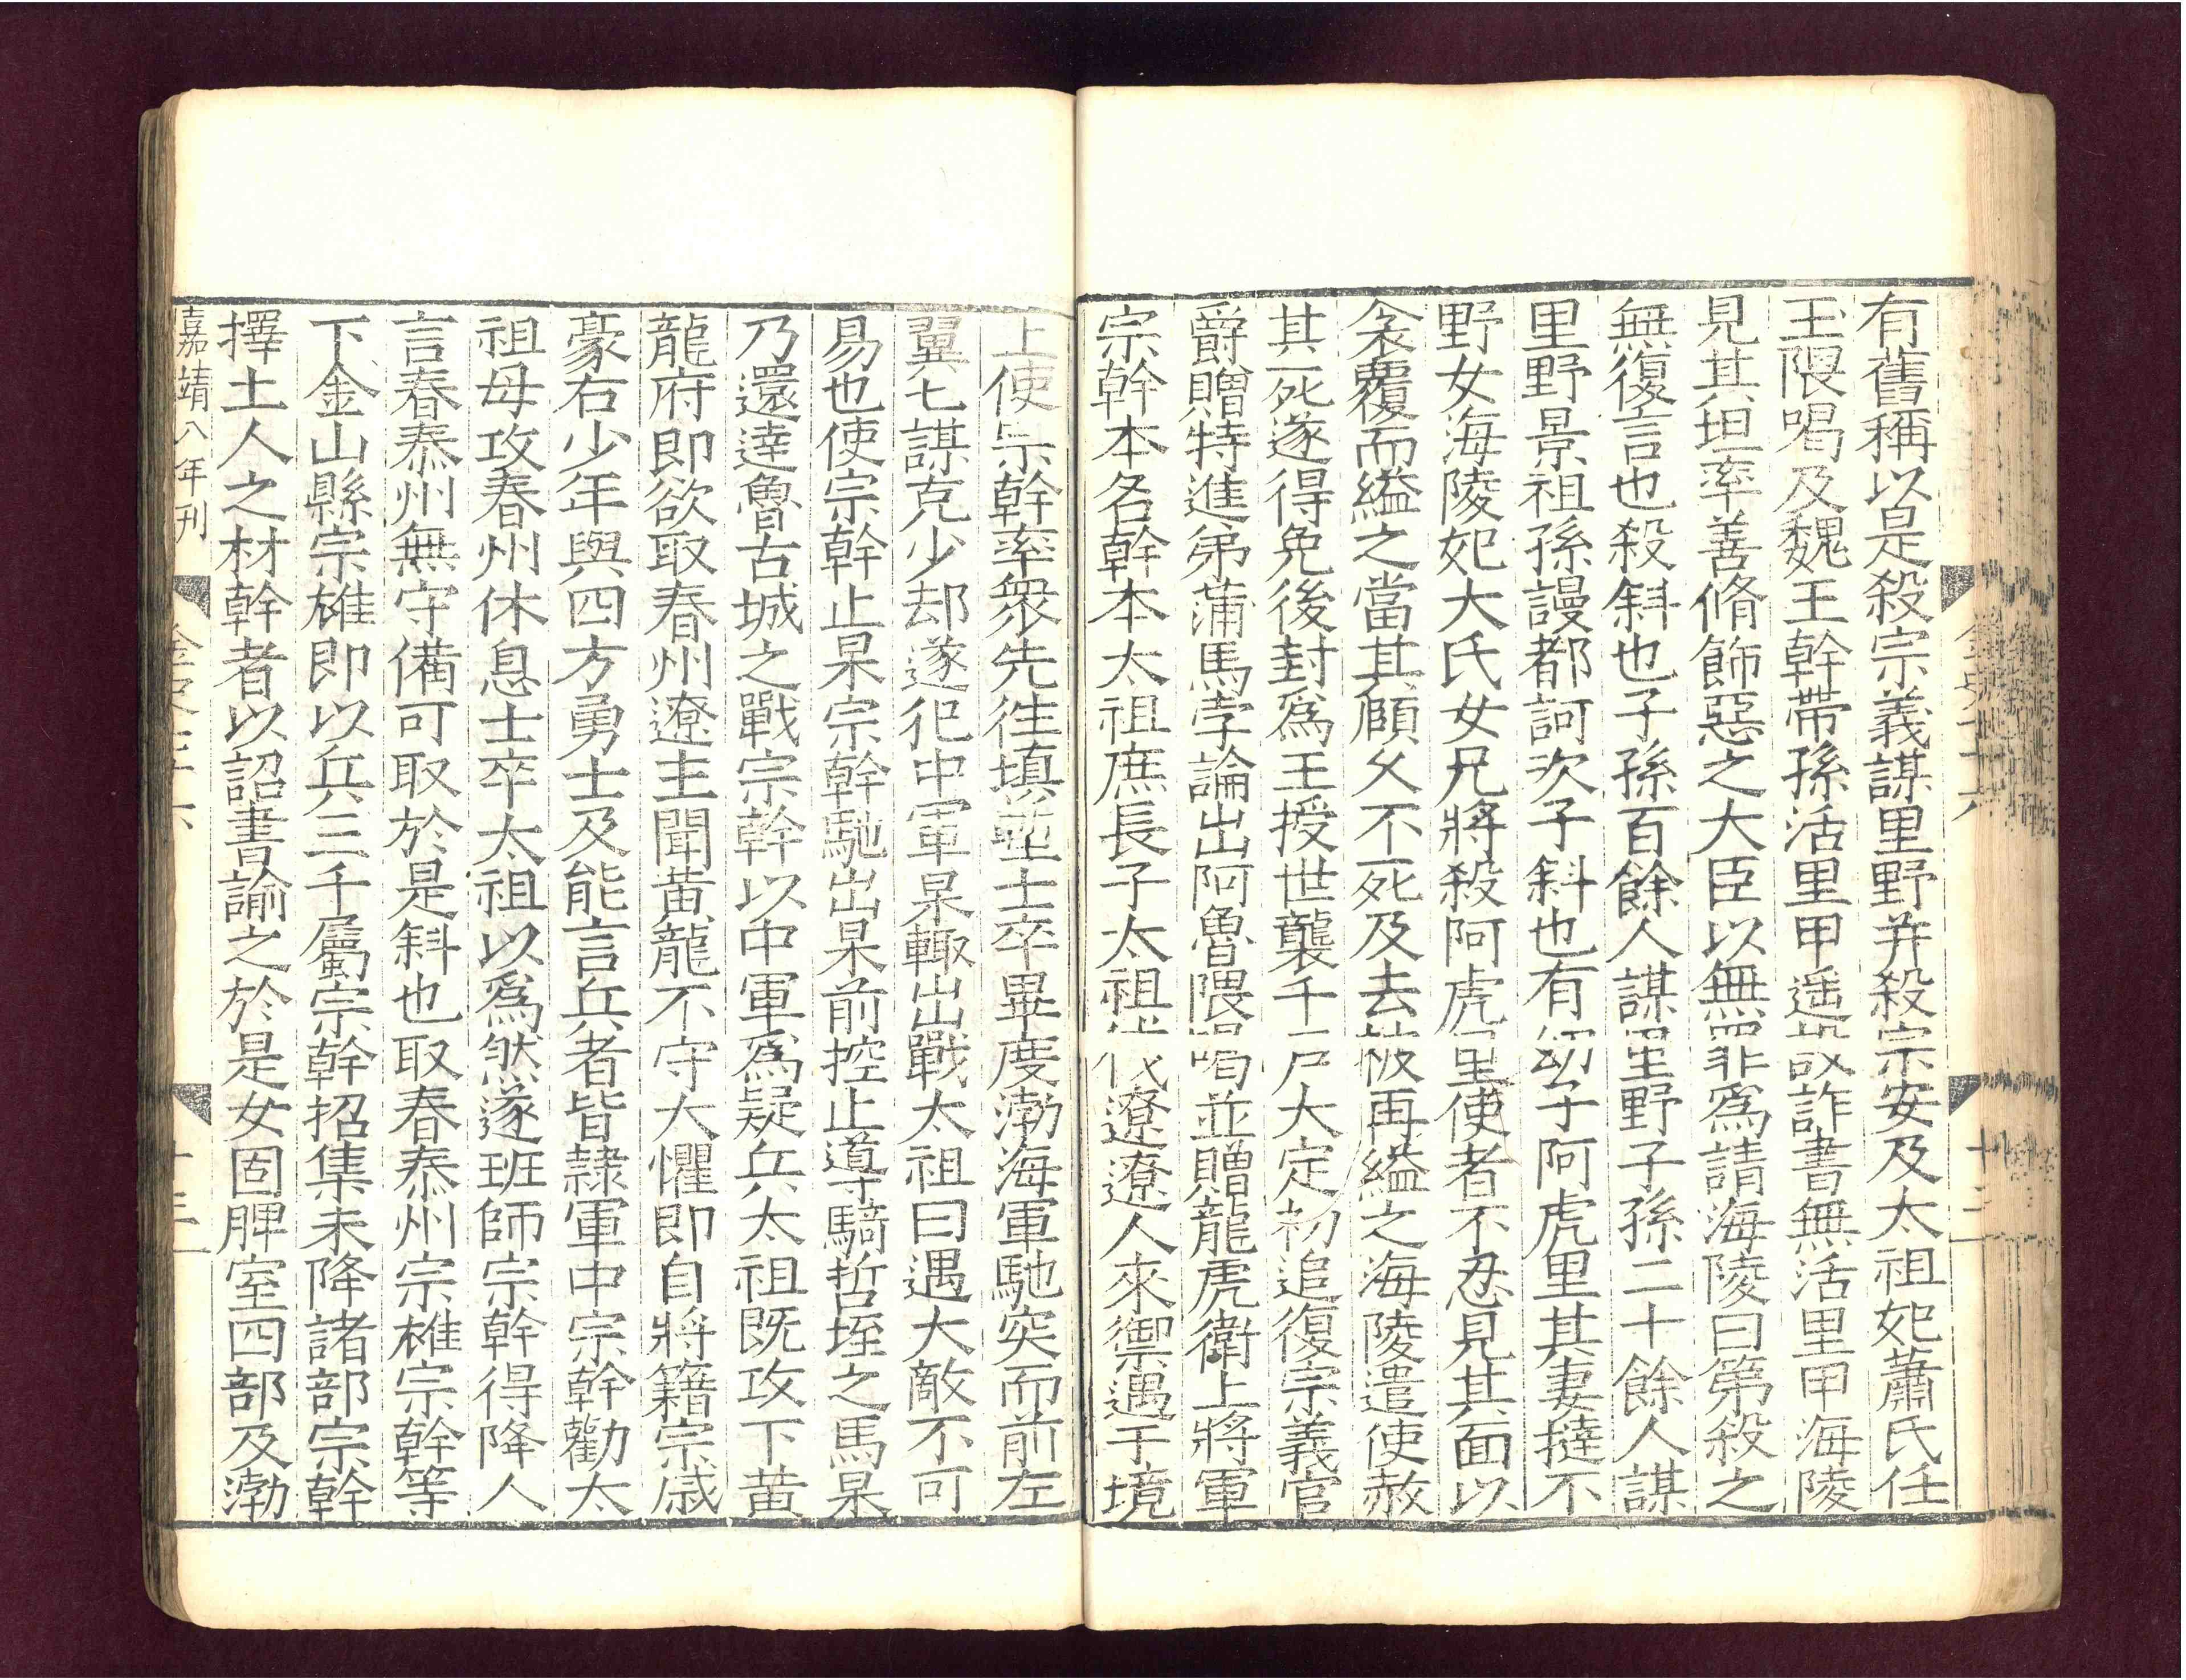 有舊稱以是殺宗義謀里野并殺宗安及太祖妃蕭氏任
王隈喝及魏王幹帶孫活里甲遥設詐書無活里甲海陵
見其坦率善脩飾惡之大臣以無罪爲請海陵曰第殺之
無復言也殺斜也子孫百餘人謀里野子孫二十餘人謀
里野景祖孫謾都訶次子斜也有幼子阿虎里其妻撻不
野女海陵妃大氏女兄將殺阿虎里使者不忍見其面以
衾覆而縊之當其頤久不死及去被再縊之海陵遣使赦
其死遂得免後封爲王授世襲千户大定初追復宗義官
爵贈特進弟蒲馬孛論出阿魯隈喝並贈龍虎衛上將軍
宗幹本名幹本太祖庶長子太祖伐遼遼人來禦遇于境
上使宗幹率衆先徃填塹士卒畢度渤海軍馳突而前左
翼七謀克少却遂犯中軍杲輙出戰太祖曰遇大敵不可
易也使宗幹止杲宗幹馳出杲前控止導騎哲垤之馬杲
乃還達魯古城之戰宗幹以中軍爲疑兵太祖既攻下黄
龍府即欲取春州遼主聞黄龍不守大懼即自將籍宗戚
豪右少年與四方勇士及能言兵者皆隸軍中宗幹勸太
祖毋攻春州休息士卒太祖以爲然遂班師宗幹得降人
言春泰州無守備可取於是斜也取春泰州宗雄宗幹等
下金山縣宗雄即以兵三千屬宗幹招集未降諸部宗幹
擇土人之材幹者以詔書諭之於是女固脾室四部及渤
嘉靖八年刊